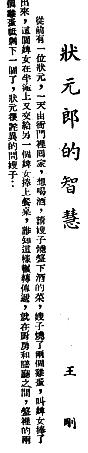 狀元郎的智慧
王剛
從前有一位狀元，一天由衙門裡回家，想喝酒，請嫂子燒盤下酒的菜，嫂子燒了兩個雞蛋，叫婢女捧了
出來，這個婢女在半途上又交給另一個婢女捧上餐桌，誰知道這樣輾轉傳遞，就在廚房和廳廳之間，盤裡的兩
個雞蛋祇剩下一個了，狀元很詫異的問嫂子：